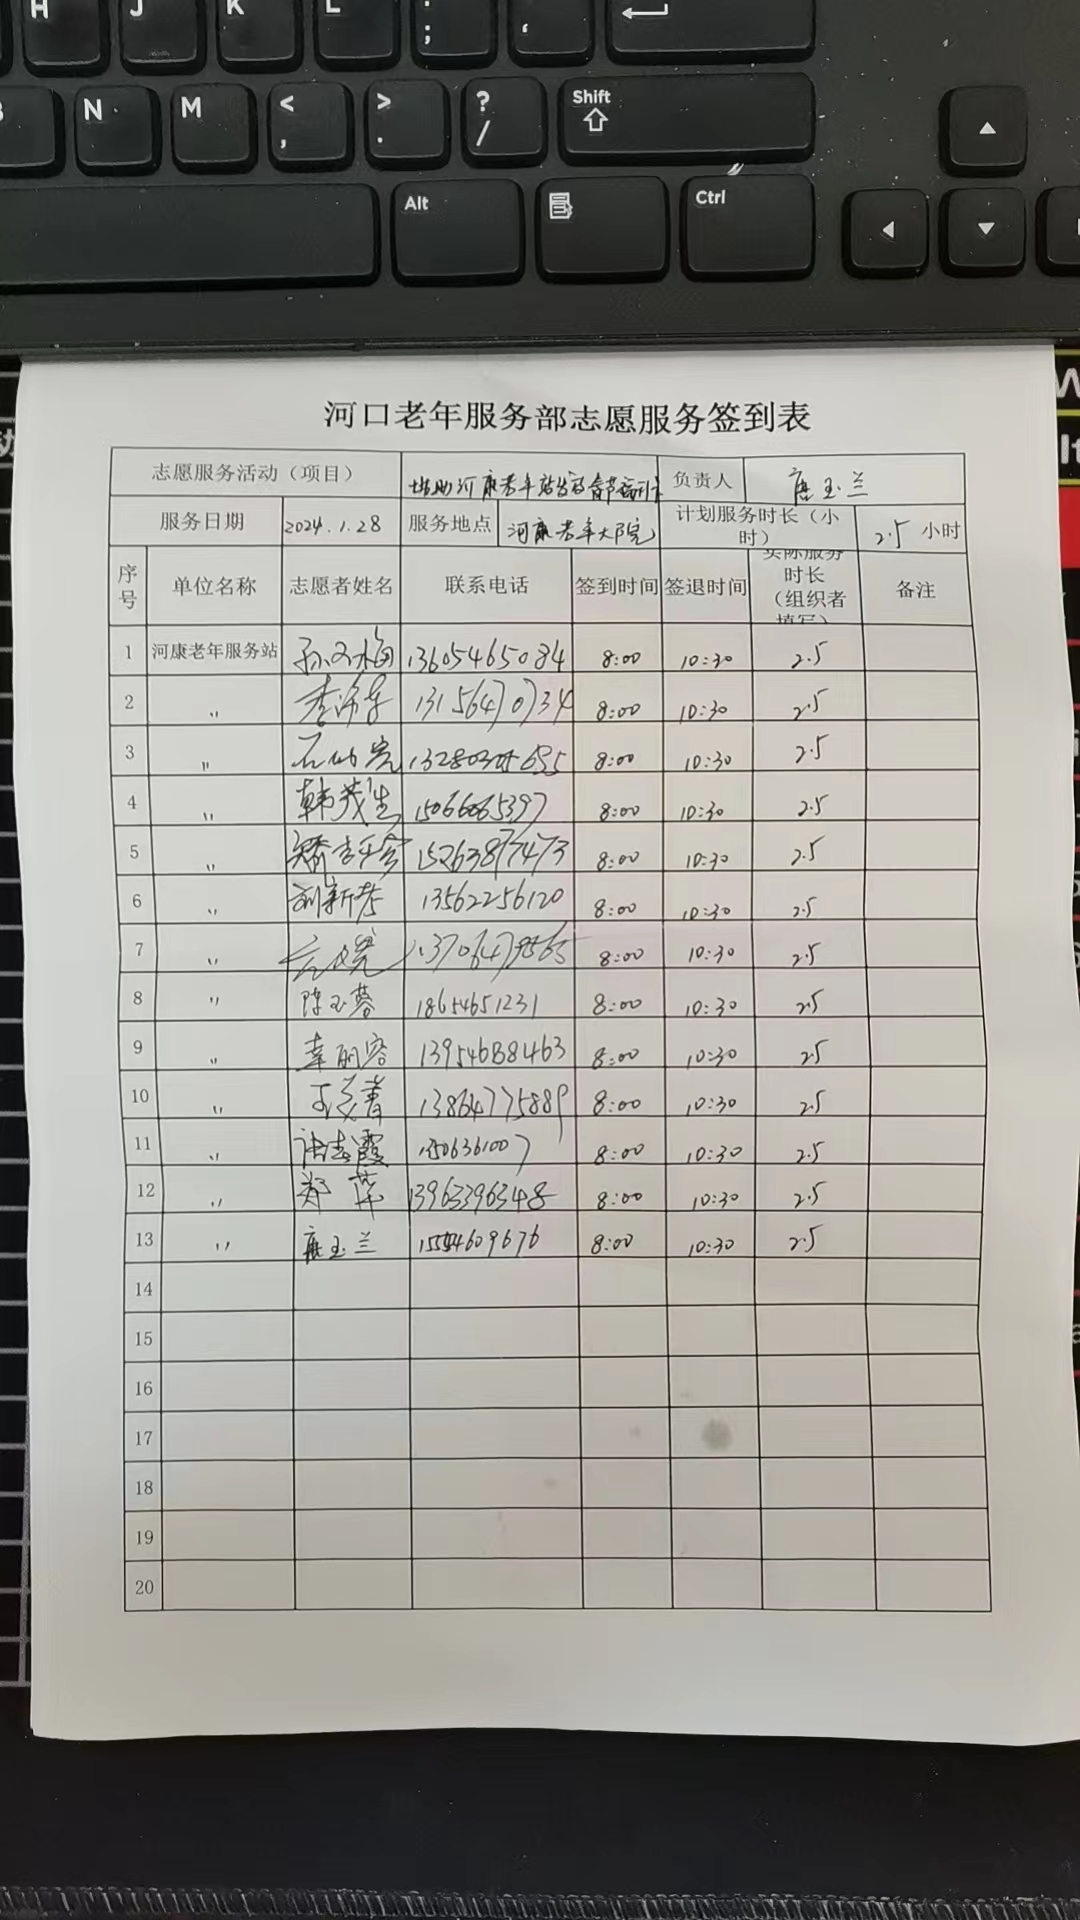 H J K L : ;
" ,
N M < , > . ? / Shift
Alt Ctrl
河口老年服务部志愿服务签到表
志愿服务活动（项目） 协助河康老年站发放春节福利 负责人 唐玉兰
服务日期 2024.1.28 服务地点 河康老年大院 计划服务时长（小时） 2.5 小时
序号 单位名称 志愿者姓名 联系电话 签到时间 签退时间 实际服务时长（组织者填写） 备注
1 河康老年服务站 13605465084 8:00 10:30 2.5
2 〃 13156470734 8:00 10:30 2.5
3 〃 8:00 10:30 2.5
4 〃 韩茂生 15066065397 8:00 10:30 2.5
5 〃 15263877473 8:00 10:30 2.5
6 〃 刘新芳 13562256120 8:00 10:30 2.5
7 〃 8:00 10:30 2.5
8 〃 陈玉蓉 18654651231 8:00 10:30 2.5
9 〃 8:00 10:30 2.5
10 〃 13864775889 8:00 10:30 2.5
11 〃 8:00 10:30 2.5
12 〃 郑萍 13963396348 8:00 10:30 2.5
13 〃 唐玉兰 15554609676 8:00 10:30 2.5
14
15
16
17
18
19
20